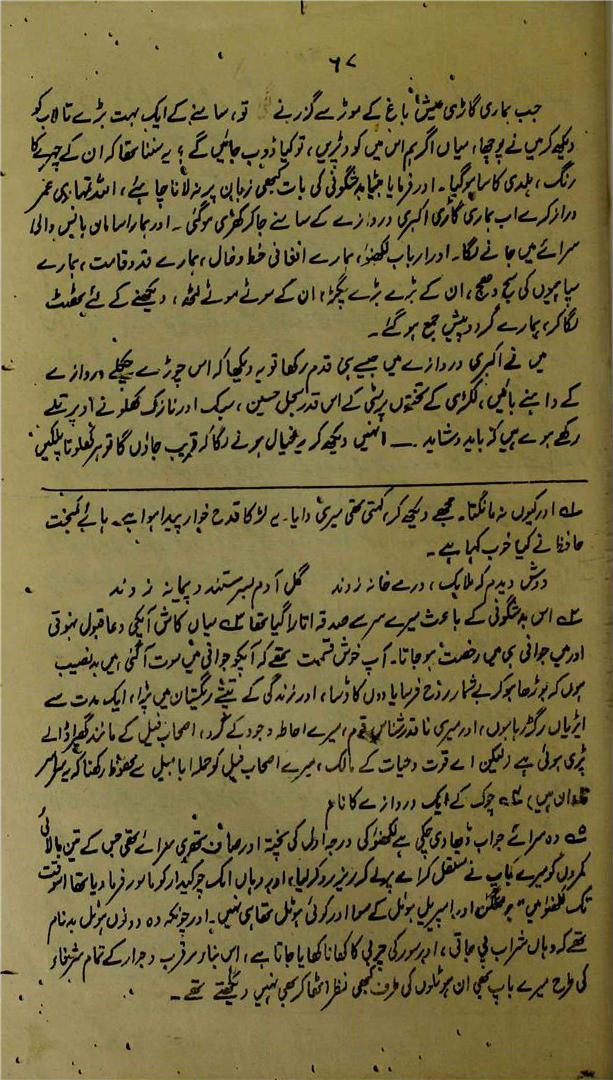 ۶۷
جب ہماری گاڑی عیش باغ کے موڑ سے گزرنے لگی تو، سامنے کے ایک بہت بڑے تالاب کو
دیکھ کر میں نے پوچھا، میاں اگر ہم اس میں کود پڑیں، تو کیا ڈوب جائیں گے؟ یہ سننا تھا کہ ان کے چہرے کا
رنگ، ہلدی کا سا ہو گیا۔ اور فرمایا بیٹا بدشگونی کی بات کبھی زبان پر نہ لانا چاہئے، اللہ تمہاری عمر
دراز کرے اب ہماری گاڑی اکبری دروازے کے سامنے جا کر کھڑی ہو گئی۔ اور ہمارا سامان بانس والی
سرائے میں جانے لگا۔ اور ارباب لکھنؤ، ہمارے افغانی خط و خال، ہمارے قد و قامت، ہمارے
سپاہیوں کی سج دھج، ان کے بڑے بڑے پگڑ، ان کے موٹے موٹے لٹھ، دیکھنے کے لئے ٹھٹ
لگا کر، ہمارے گرد و پیش جمع ہو گئے۔
میں نے اکبری دروازے میں جیسے ہی قدم رکھا تو یہ دیکھا کہ اس چوڑے چکلے دروازے
کے داہنے بائیں، لکڑی کے تختوں پر مٹی کے اس قدر جمیل حسین، سبک اور نازک کھلونے اوپر تلے
رکھے ہوئے ہیں کہ باید و شاید ۔۔ انہیں دیکھ کر یہ خیال ہونے لگا کہ قریب جاؤں گا تو ہر کھلونا پلکیں
۱؎ اور کیوں نہ مانگتا۔ مجھے دیکھ کر، کہتی تھی میری دایا۔ یہ لڑکا قدح خوار پیدا ہوا ہے۔ ہائے کمبخت
حافظ نے کیا خوب کہا ہے۔
دوش دیدم کہ ملائک، در مے خانہ زدند گل آدم بسرشتند و پیمانہ زدند
۲؎ اس بدشگونی کے باعث میرے سر سے صدقہ اتارا گیا تھا ۳؎ میاں کاش آپکی دعا قبول نہ ہوتی
اور میں جوانی ہی میں رخصت ہو جاتا۔ آپ خوش قسمت تھے کہ آپکو جوانی میں موت آ گئی، میں بدنصیب
ہوں کہ بوڑھا ہو کر بے شمار روح فرسایادوں کا ڈسا، اور زندگی کے تپتے ریگستان میں پڑا، ایک مدت سے
ایڑیاں رگڑ رہا ہوں، اور میری ناقدر شناس قوم، میرے احاطہ وجود کے گرد، اصحاب فیل کے مانند گھیرا ڈالے
پڑی ہوئی ہے (لیکن اے قوت و حیات کے مالک، میرے اصحاب فیل کو حملہ ابابیل سے محفوظ رکھنا کہ یہ سراسر
نادان ہیں) ۴؎ چوک کے ایک دروازے کا نام
۵؎ وہ سرائے جو اب ڈھا دی جا چکی ہے لکھنؤ کی درجہ اول کی پختہ اور صاف ستھری سرائے تھی جس کے تین بالائی
کمروں کو میرے باپ نے مستقل کرائے پر لے کر ریزرو کر لیا، اور وہاں ایک چوکیدار کو مامور فرما دیا تھا اسوقت
تک لکھنؤ میں اور امپیریل ہوٹل کے سوا اور کوئی ہوٹل تھا ہی نہیں۔ اور چونکہ وہ دونوں ہوٹل بدنام
تھے کہ وہاں شراب پی جاتی، اور سور کی چربی کا کھانا کھایا جاتا ہے، اس بناء پر قرب و جوار کے تمام شرفاء
کی طرح میرے باپ بھی ان ہوٹلوں کی طرف کبھی نظر اٹھا کر بھی نہیں دیکھتے تھے۔